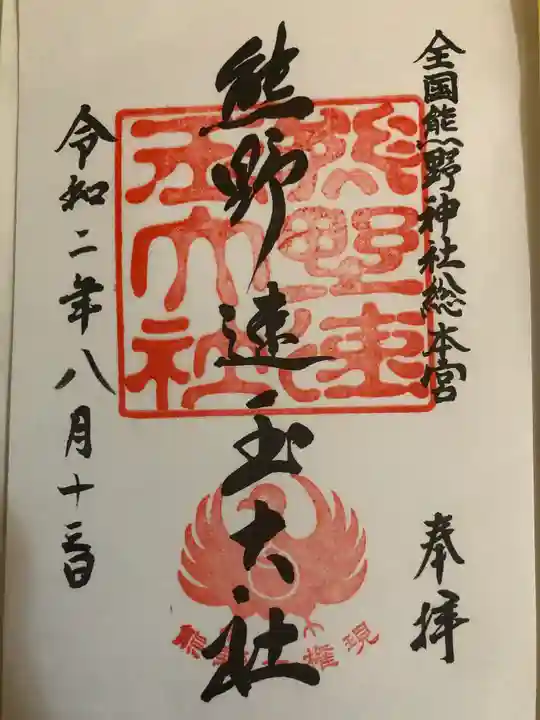 全国熊野神社総本宮
奉拝
熊野速玉大社
令和二年八月十三日
熊野速玉大社
権現